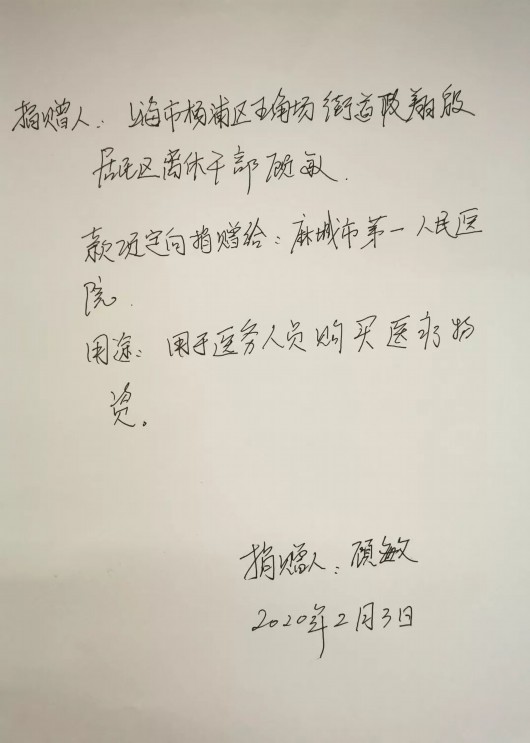 捐赠人：上海市杨浦区五角场街道政翔殷
居民区离休干部顾敏.
款项定向捐赠给：麻城市第一人民医
院.
用途：用于医务人员购买医疗物
资。
捐赠人：顾敏
2020年2月3日